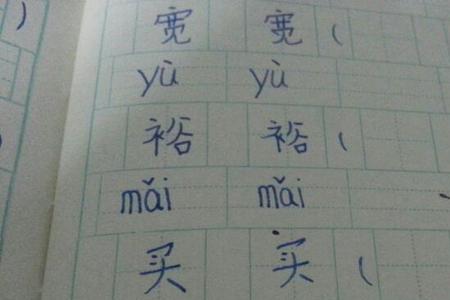 宽 宽 (
yù yù
裕 裕 (
mǎi mǎi
买 买 (